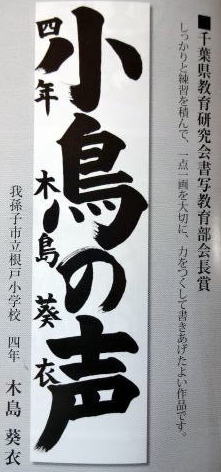 ■千葉県教育研究会書写教育部会長賞
しっかりと練習を積んで、一点一画を大切に、力をつくして書きあげたよい作品です。
小鳥の声
四年 木島葵衣
我孫子市立根戸小学校 四年 木島 葵衣